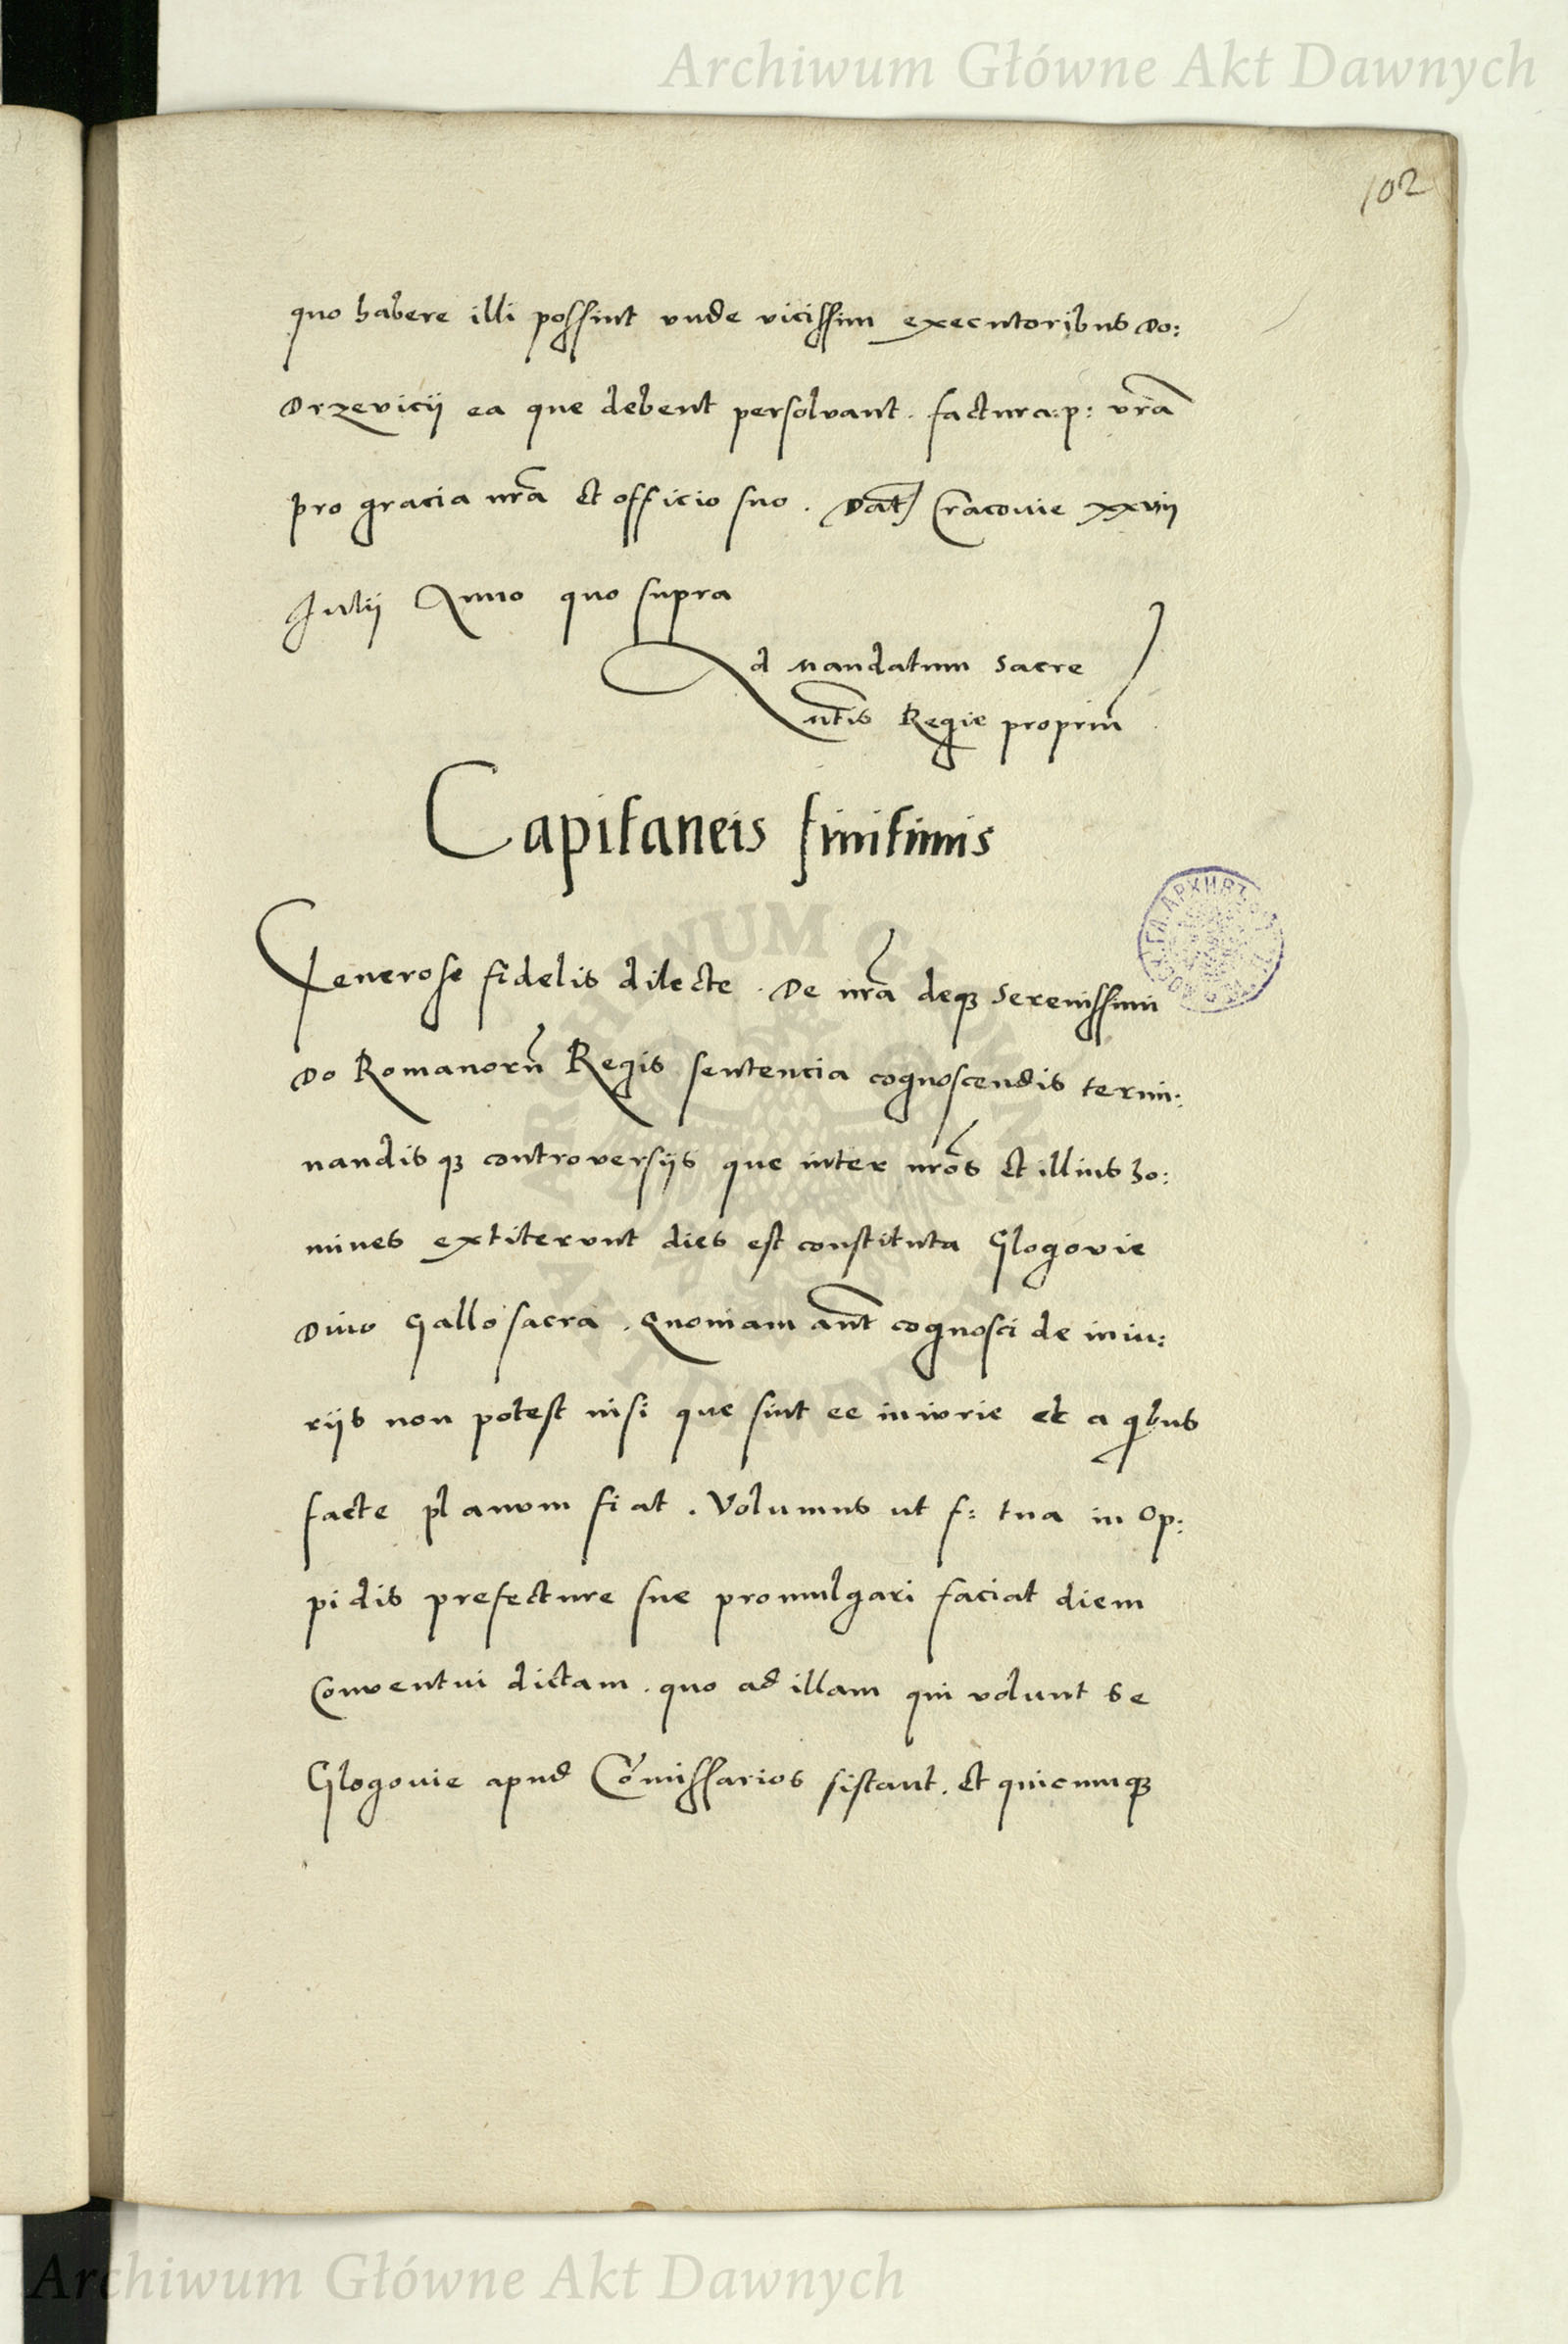 Archiwum Główne Akt Dawnych
102
quo habere illi possint vnde vicissim executoribus Do:
Drzevicij ea que debent persolvant. factura: p: vra
pro gracia nra et officio suo. Dat Cracouie xxviij
Julij Anno quo supra
Ad mandatum sacre
mtis Regie propriu
Capitaneis finitimis
Generose fidelis dilecte. De nra deq3 Serenissimi
Do Romanoru Regis sententia cognoscendis termi:
nandis q3 controversijs que inter nros et illius ho:
mines extiterunt dies est constituta Glogovie
Divo Gallo sacra. Quoniam aut cognosci de iniu:
rijs non potest nisi que sint ee iniurie et a qibus
facte planum fiat. Volumus ut f: tua in Op:
pidis prefecture sue promulgari faciat diem
Conventui dictam. quo ad illam qui volunt se
Glogouie apud Comissarios sistant. Et quicunq3
ARCHIWUM GŁÓWNE AKT DAWNYCH
Archiwum Główne Akt Dawnych